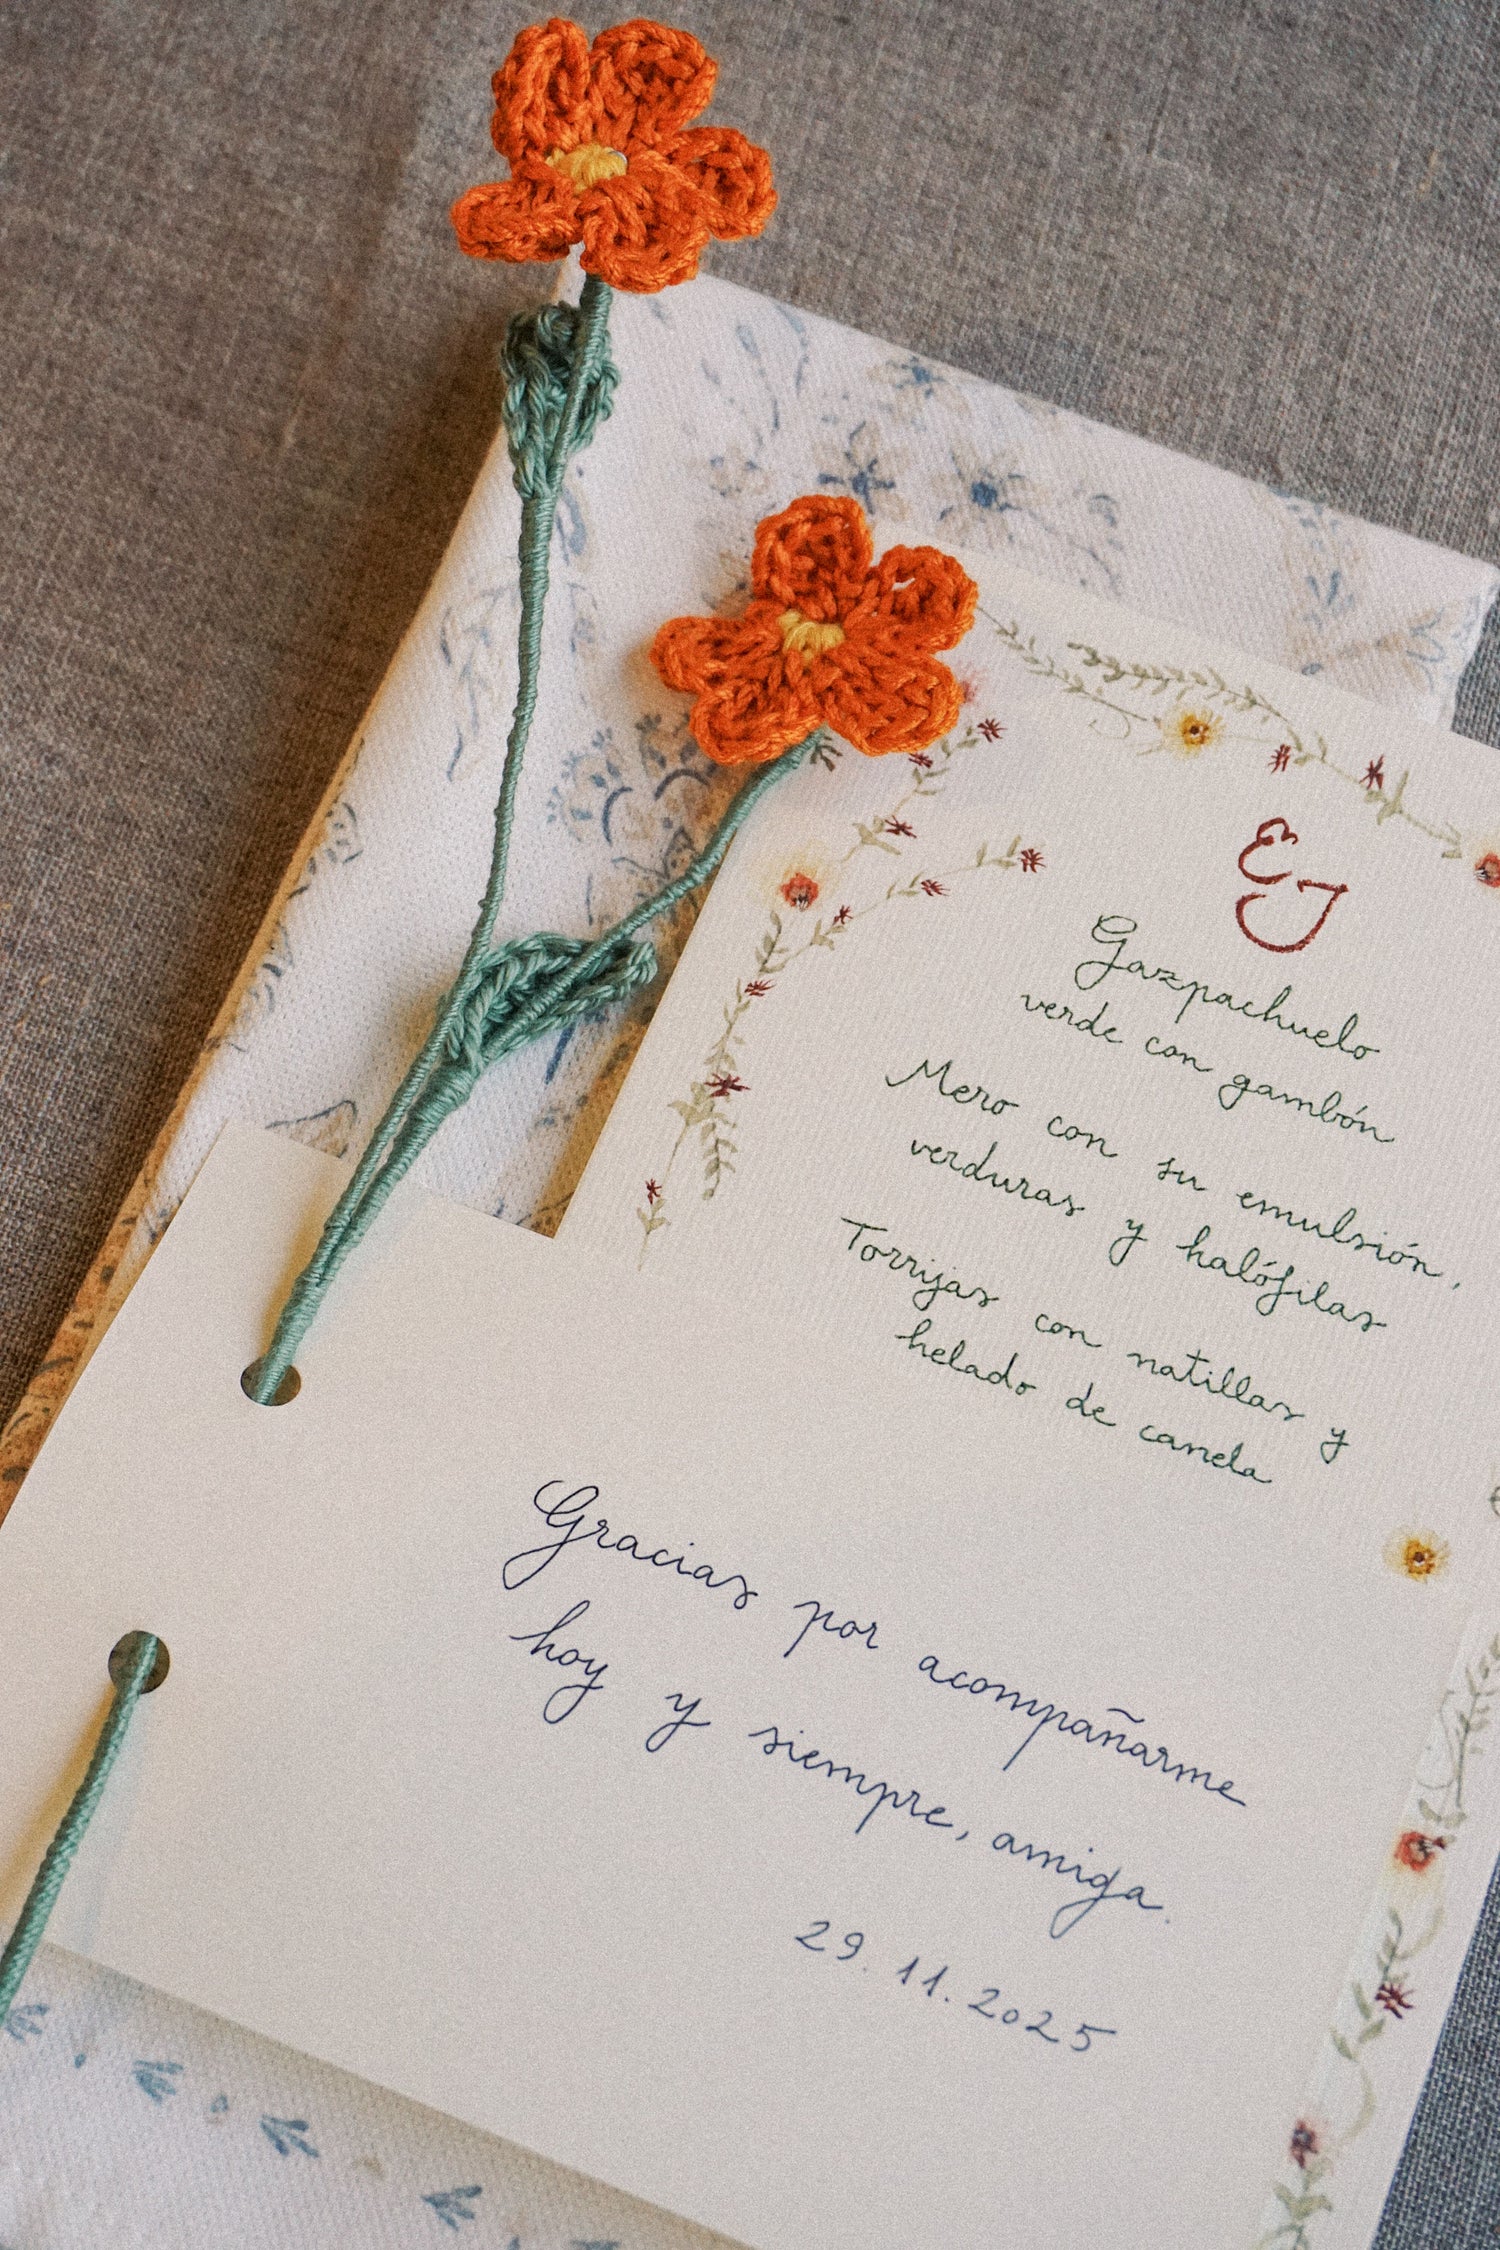 EJ
Gazpachuelo
verde con gambón
Mero con su emulsión,
verduras y halófilas
Torrijas con natillas y
helado de canela
Gracias por acompañarme
hoy y siempre, amiga.
29.11.2025